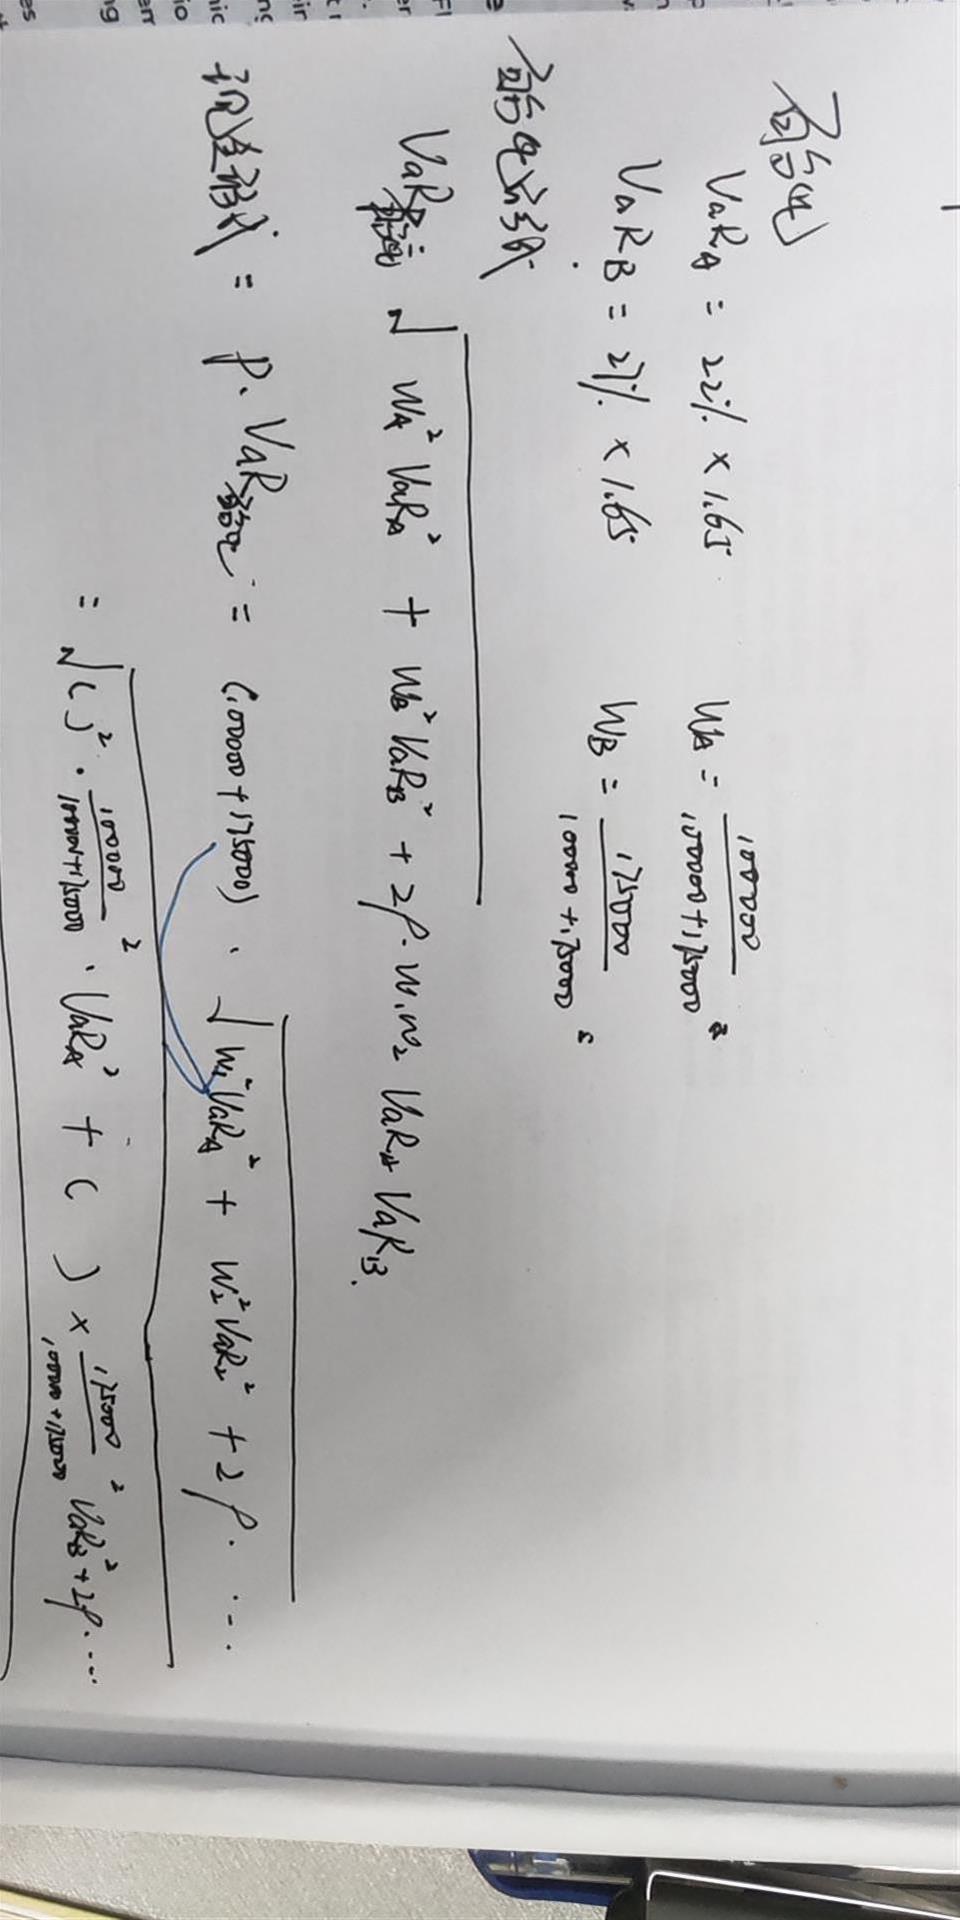 百分比
VaR_A = 22% × 1.65   W_A = 100000 / 100000+175000
VaR_B = 27% × 1.65   W_B = 175000 / 100000+175000
百分比形式
VaR √ W_A² VaR_A² + W_B² VaR_B² + 2ρ·W₁W₂ VaR_A VaR_B
形式 = P·VaR百分比 = (100000+175000) · √ W₁² VaR_A² + W₂² VaR₂² + 2ρ· ...
= √ ( )² · 100000 / 100000+175000 ² · VaR_A² + ( ) × 175000 / 100000+175000 ² VaR_B² + 2ρ· ...